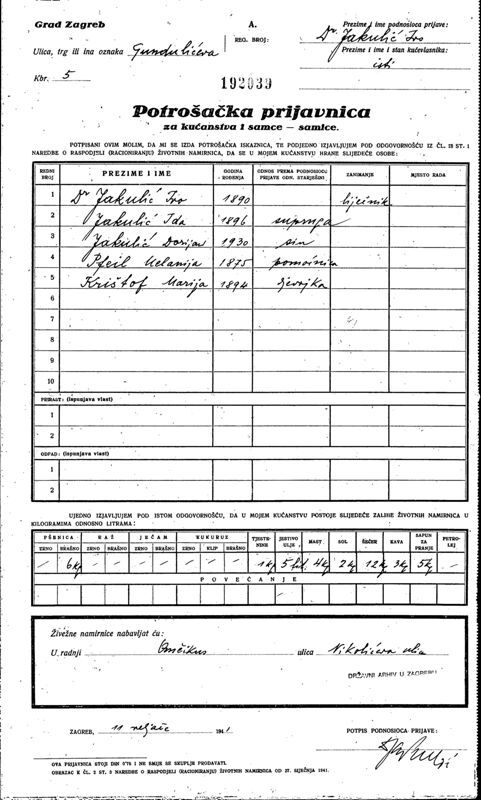 Grad Zagreb
A.
Prezime i ime podnosioca prijave:
Ulica, trg ili ina oznaka Gundulićeva
REG. BROJ:
Dr Jakulić Ivo
Prezime i ime i stan kućevlasnika:
Kbr. 5
isti
192039
Potrošačka prijavnica
za kućanstva i samce — samice.
POTPISANI OVIM MOLIM, DA MI SE IZDA POTROŠAČKA ISKAZNICA, TE PODJEDNO IZJAVLJUJEM POD ODGOVORNOŠĆU IZ ČL. 18 ST. 1
NAREDBE O RASPODJELI (RACIONIRANJU) ŽIVOTNIH NAMIRNICA, DA SE U MOJEM KUĆANSTVU HRANE SLIJEDEĆE OSOBE:
REDNI BROJ PREZIME I IME GODINA ROĐENJA ODNOS PREMA PODNOSIOCU PRIJAVE ODN. STARJEŠINI ZANIMANJE MJESTO RADA
1 Dr Jakulić Ivo 1890 liječnik
2 Jakulić Ida 1896 supruga
3 Jakulić Dorijan 1930 sin
4 Pfeil Melanija 1875 pomoćnica
5 Krištof Marija 1894 djevojka
6
7
8
9
10
PRIRAST: (ispunjava vlast)
1
2
OTPAD: (ispunjava vlast)
1
2
UJEDNO IZJAVLJUJEM POD ISTOM ODGOVORNOŠĆU, DA U MOJEM KUĆANSTVU POSTOJE SLIJEDEĆE ZALIHE ŽIVOTNIH NAMIRNICA U
KILOGRAMIMA ODNOSNO LITRAMA:
PŠENICA RAŽ JEČAM KUKURUZ TJESTENINE JESTIVO ULJE MAST SOL ŠEĆER KAVA SAPUN ZA PRANJE PETROLEJ
ZRNO BRAŠNO ZRNO BRAŠNO ZRNO BRAŠNO ZRNO KLIP BRAŠNO
— 6 kg — — — — — — — 1 kg 5 lit 4 kg 2 kg 12 kg 3 kg 5 kg —
POVEĆANJE
Živežne namirnice nabavljat ću:
U radnji Omčikus ulica Nikolićeva ulica
DRŽAVNI ARHIV U ZAGREBU
ZAGREB, 11 veljače 1941
POTPIS PODNOSIOCA PRIJAVE:
OVA PRIJAVNICA STOJI DIN 0'75 I NE SMIJE SE SKUPLJE PRODAVATI.
OBRAZAC K ČL. 2 ST. 3 NAREDBE O RASPODJELI (RACIONIRANJU) ŽIVOTNIH NAMIRNICA OD 27. SIJEČNJA 1941.